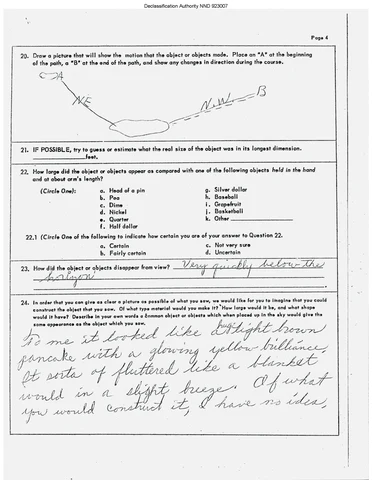 Declassification Authority NND 923007
Page 4
20. Draw a picture that will show the motion that the object or objects made. Place an "A" at the beginning
of the path, a "B" at the end of the path, and show any changes in direction during the course.
A
NE
N.W.
B
21. IF POSSIBLE, try to guess or estimate what the real size of the object was in its longest dimension.
feet.
22. How large did the object or objects appear as compared with one of the following objects held in the hand
and at about arm's length?
(Circle One): a. Head of a pin g. Silver dollar
b. Pea h. Baseball
c. Dime i. Grapefruit
d. Nickel j. Basketball
e. Quarter k. Other
f. Half dollar
22.1 (Circle One of the following to indicate how certain you are of your answer to Question 22.
a. Certain c. Not very sure
b. Fairly certain d. Uncertain
23. How did the object or objects disappear from view? Very quickly below the
horizon
24. In order that you can give as clear a picture as possible of what you saw, we would like for you to imagine that you could
construct the object that you saw. Of what type material would you make it? How large would it be, and what shape
would it have? Describe in your own words a common object or objects which when placed up in the sky would give the
same appearance as the object which you saw.
To me it looked like a huge light brown
pancake with a glowing yellow brilliance.
It sorta of fluttered like a blanket
would in a slight breeze. Of what
you would construct it, I have no idea.